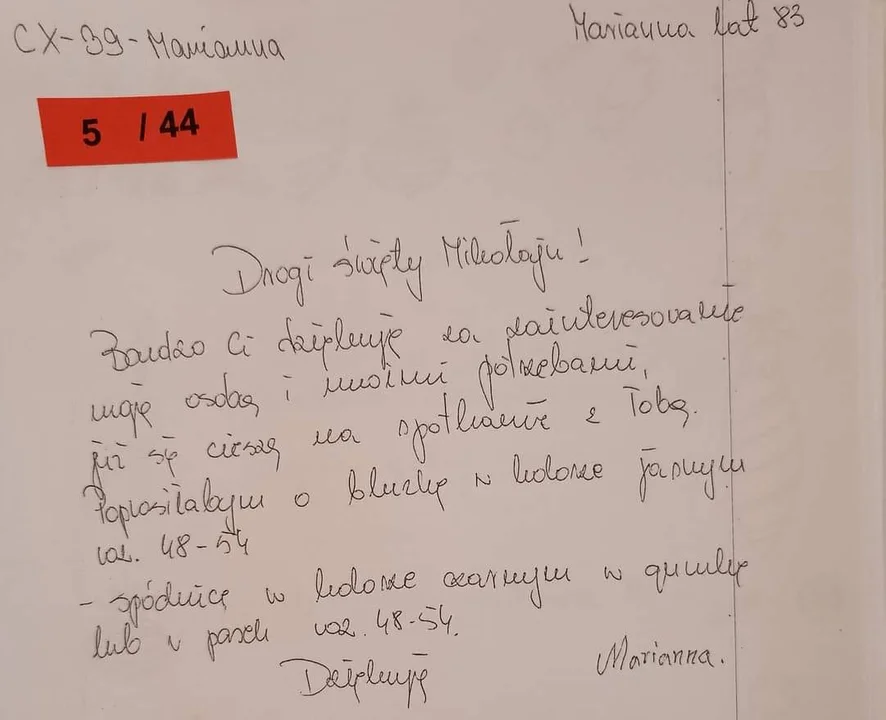 CX-39-Marianna
Marianna lat 83
5 / 44
Drogi święty Mikołaju!
Bardzo Ci dziękuję za zainteresowanie
moję osobą i moimi potrzebami,
już się cieszę na spotkanie z Tobą.
Poprosiłabym o bluzkę w kolorze jasnym
roz. 48-54
- spódnicę w kolorze czarnym w gumkę
lub w pasek roz. 48-54.
Dziękuję
Marianna.